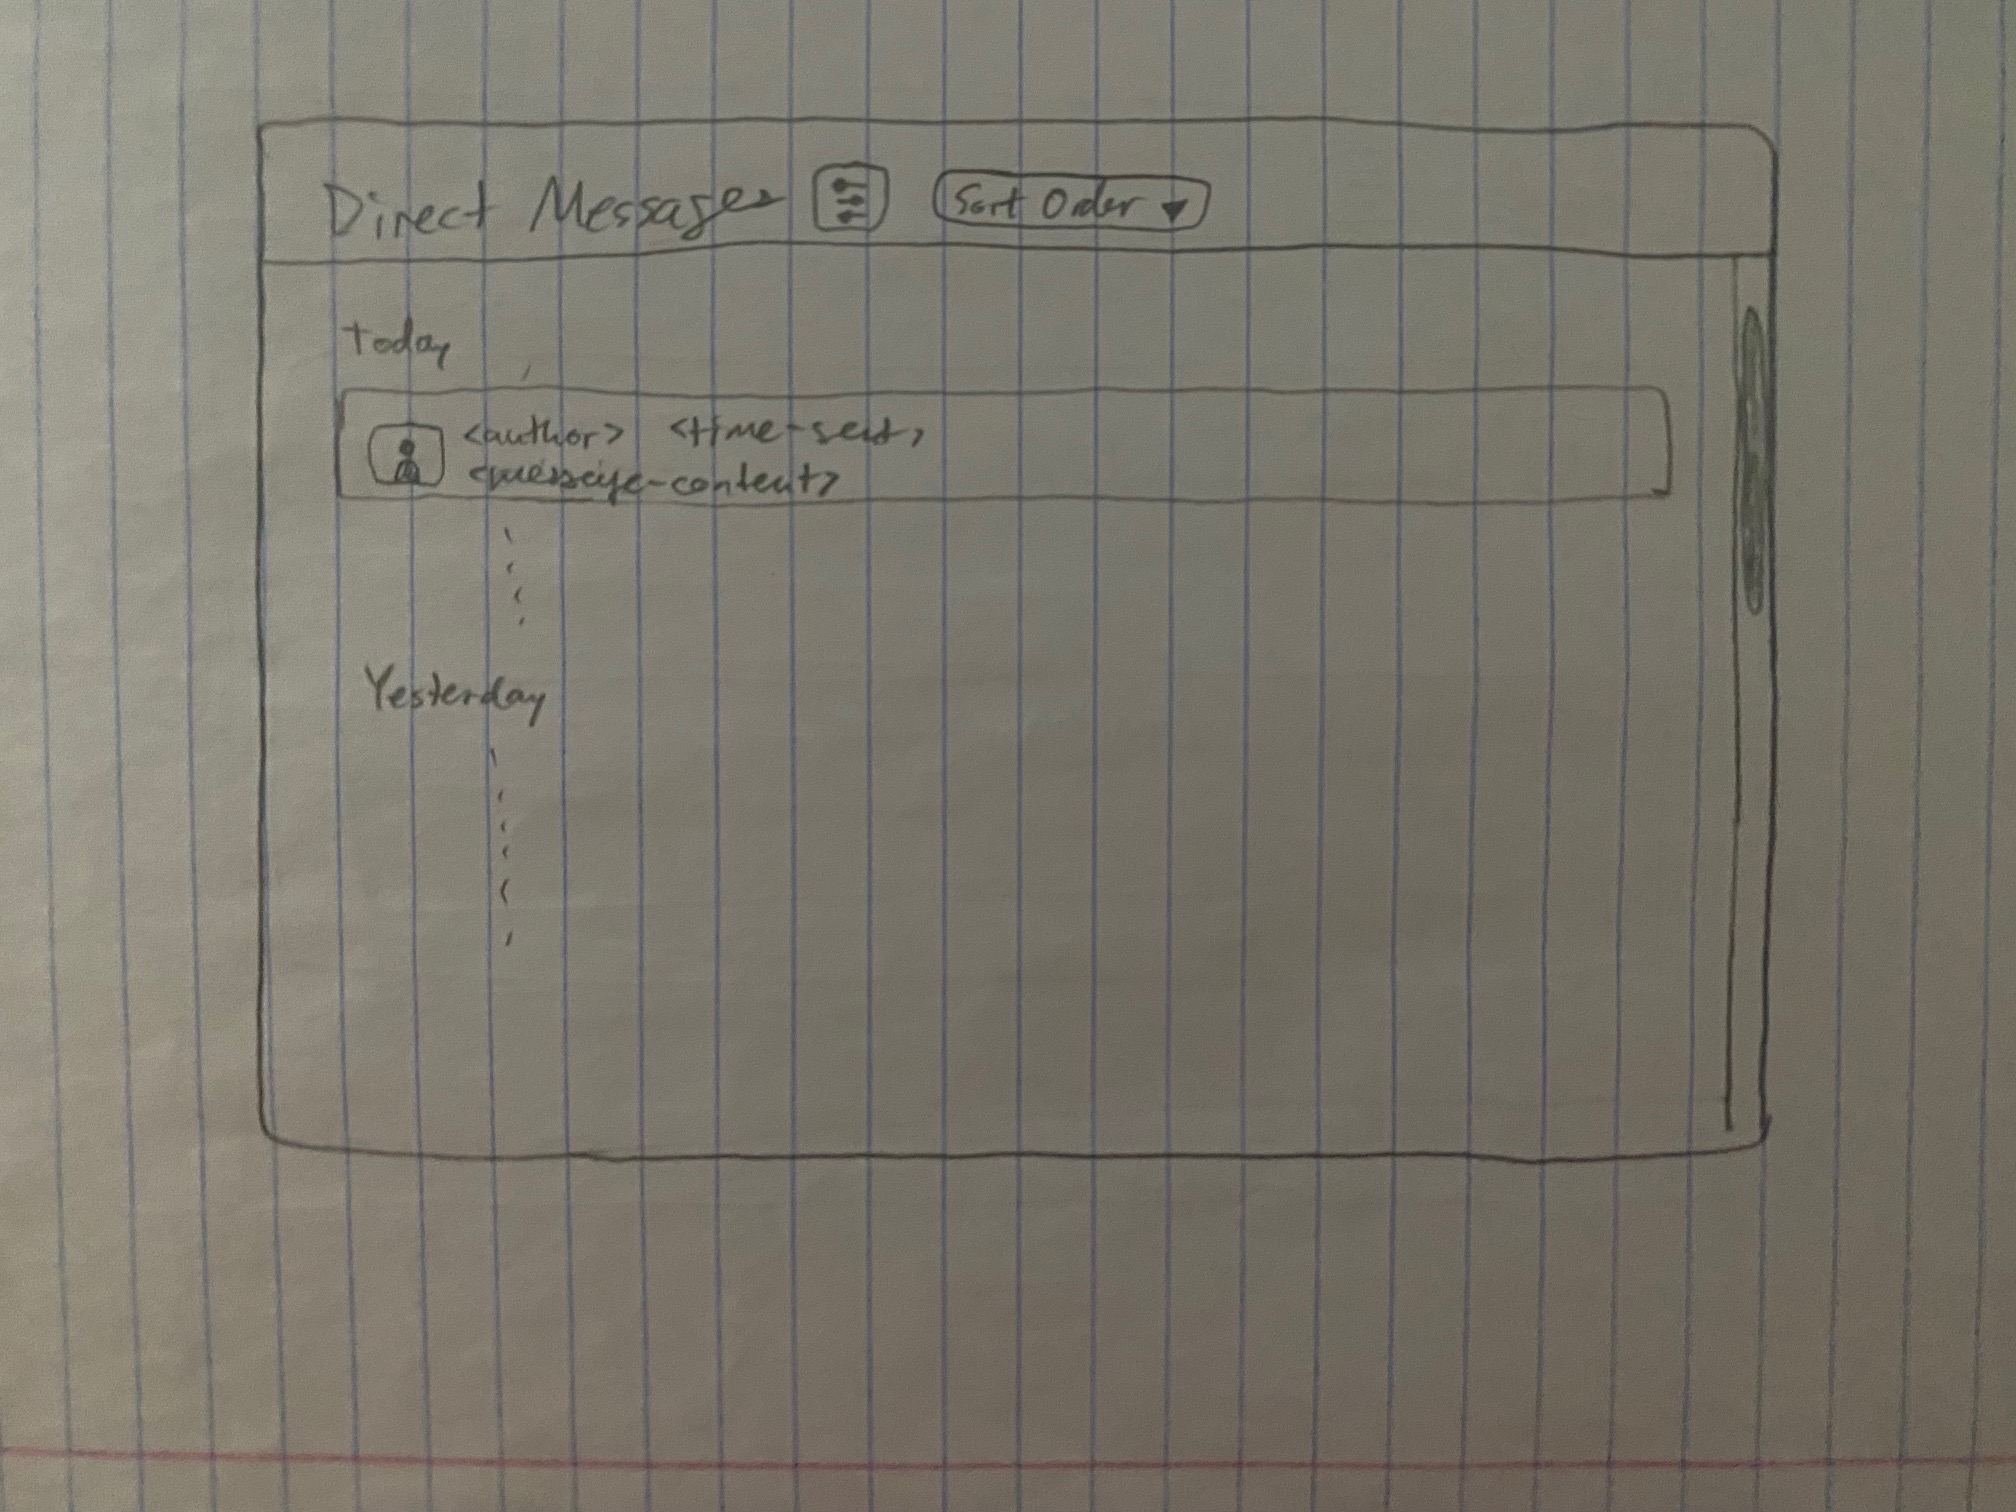 Direct Messages
Sort Order ▾
Today
<author> <time-sent>
<message-content>
Yesterday